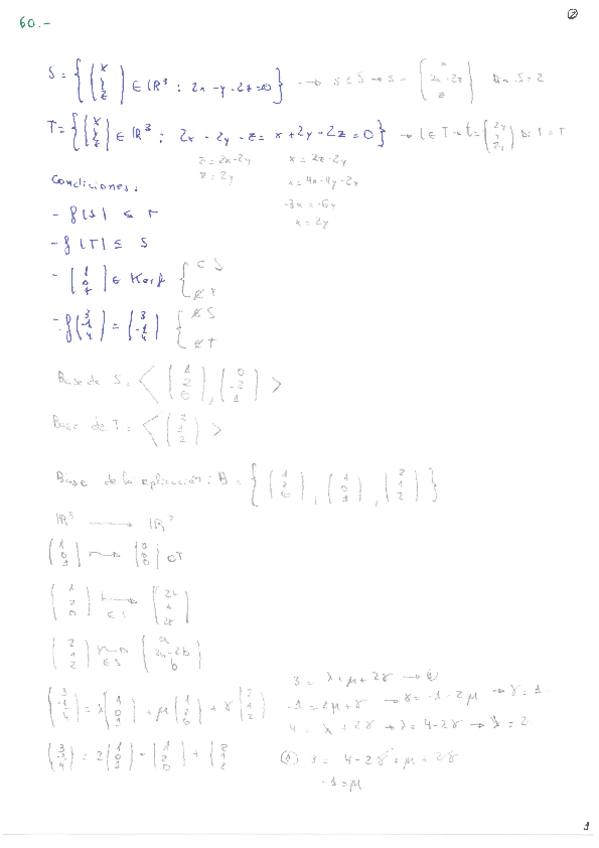 ②
60.-
S = { (x y z) ∈ ℝ³ : 2x - y - 2z = 0 } → s ∈ S → s = (x 2x-2z z) Dim S = 2
T = { (x y z) ∈ ℝ³ : 2x - 2y - z = x + 2y - 2z = 0 } → t ∈ T → t = (2y y 2y)
z = 2x - 2y x = 2z - 2y
z = 2y x = 4x - 4y - 2y
-3x = -6y
x = 2y
Condiciones:
- f(S) ⊆ T
- f(T) ⊆ S
- (1 0 1) ∈ Ker f { ∈ S
∉ T
- f(3 -1 4) = (3 -1 4) { ∉ S
∉ T
Base de S: < (1 2 0), (0 -2 1) >
Base de T: < (2 1 2) >
Base de la aplicación: B = { (1 2 0), (1 0 1), (2 1 2) }
ℝ³ → ℝ³
(1 0 1) → (0 0 0) ∈ T
(1 2 0) ∈ S → (2α α 2α)
(2 1 2) → ∈ S (a 2a-2b b)
(3 -1 4) = λ (1 0 1) + μ (1 2 0) + γ (2 1 2)
3 = λ + μ + 2γ →
-1 = 2μ + γ → γ = -1 - 2μ → γ = 1
4 = λ + 2γ → λ = 4 - 2γ → λ = 2
= 2 (1 0 1) - (1 2 0) + (2 1 2)
3 = 4 - 2γ + μ + 2γ
-1 = μ
1